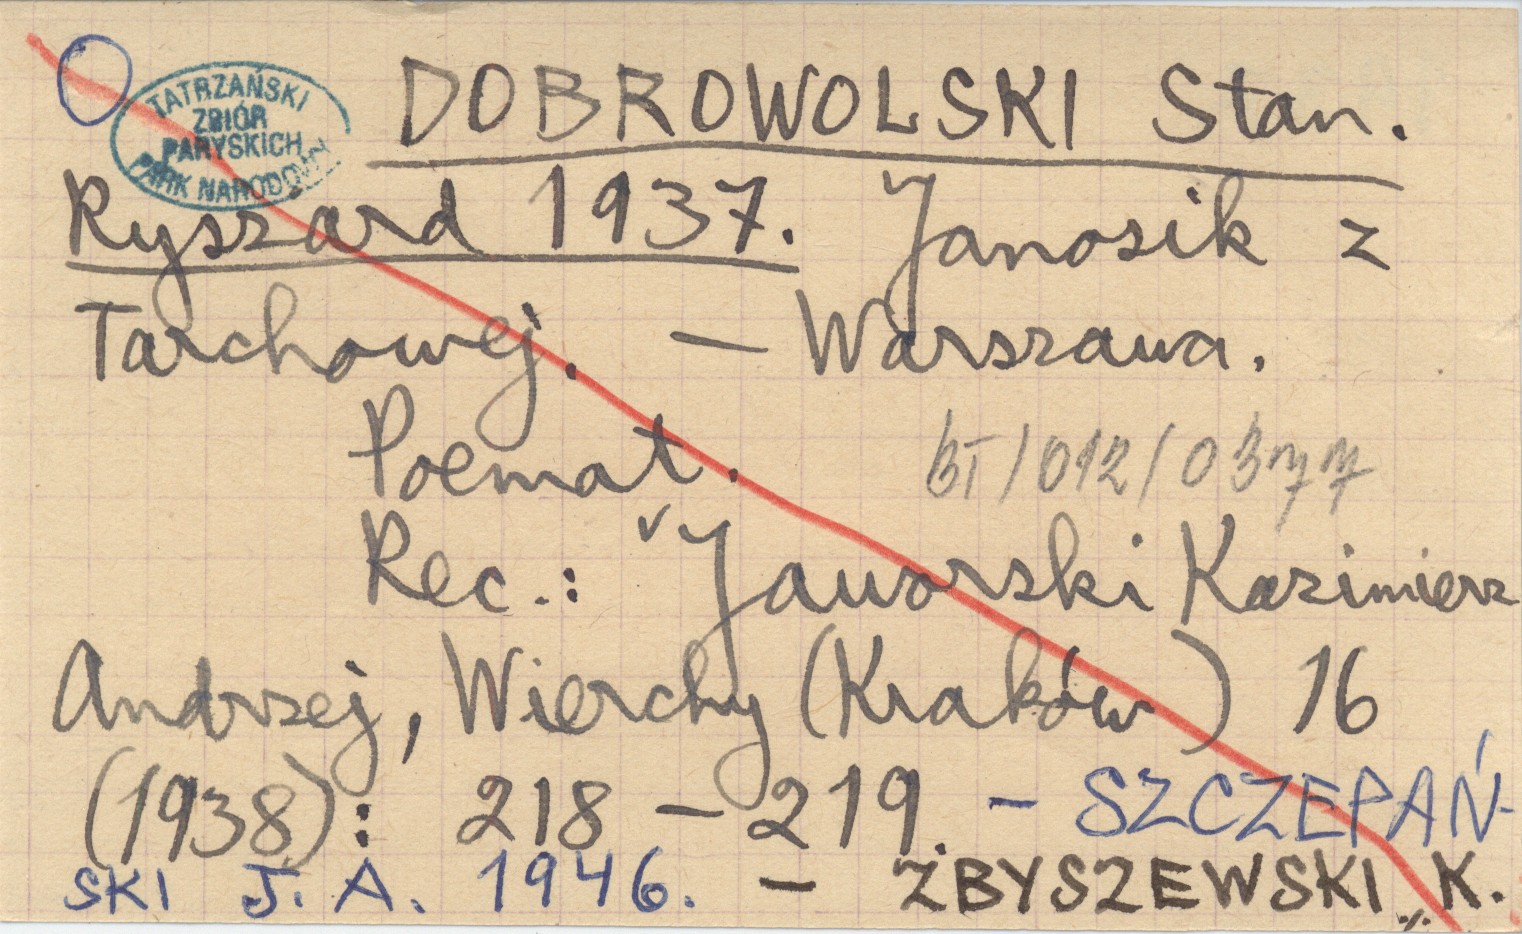 TATRZAŃSKI
ZBIÓR
PARYSKICH
PARK NARODOWY
DOBROWOLSKI Stan.
Ryszard 1937. Janosik z
Tarchowej. — Warszawa.
Poemat.
BT/012/0377
Rec.: Jaworski Kazimierz
Andrzej, Wierchy (Kraków) 16
(1938): 218 – 219. – SZCZEPAŃ-
SKI J. A. 1946. – ZBYSZEWSKI K.
./.